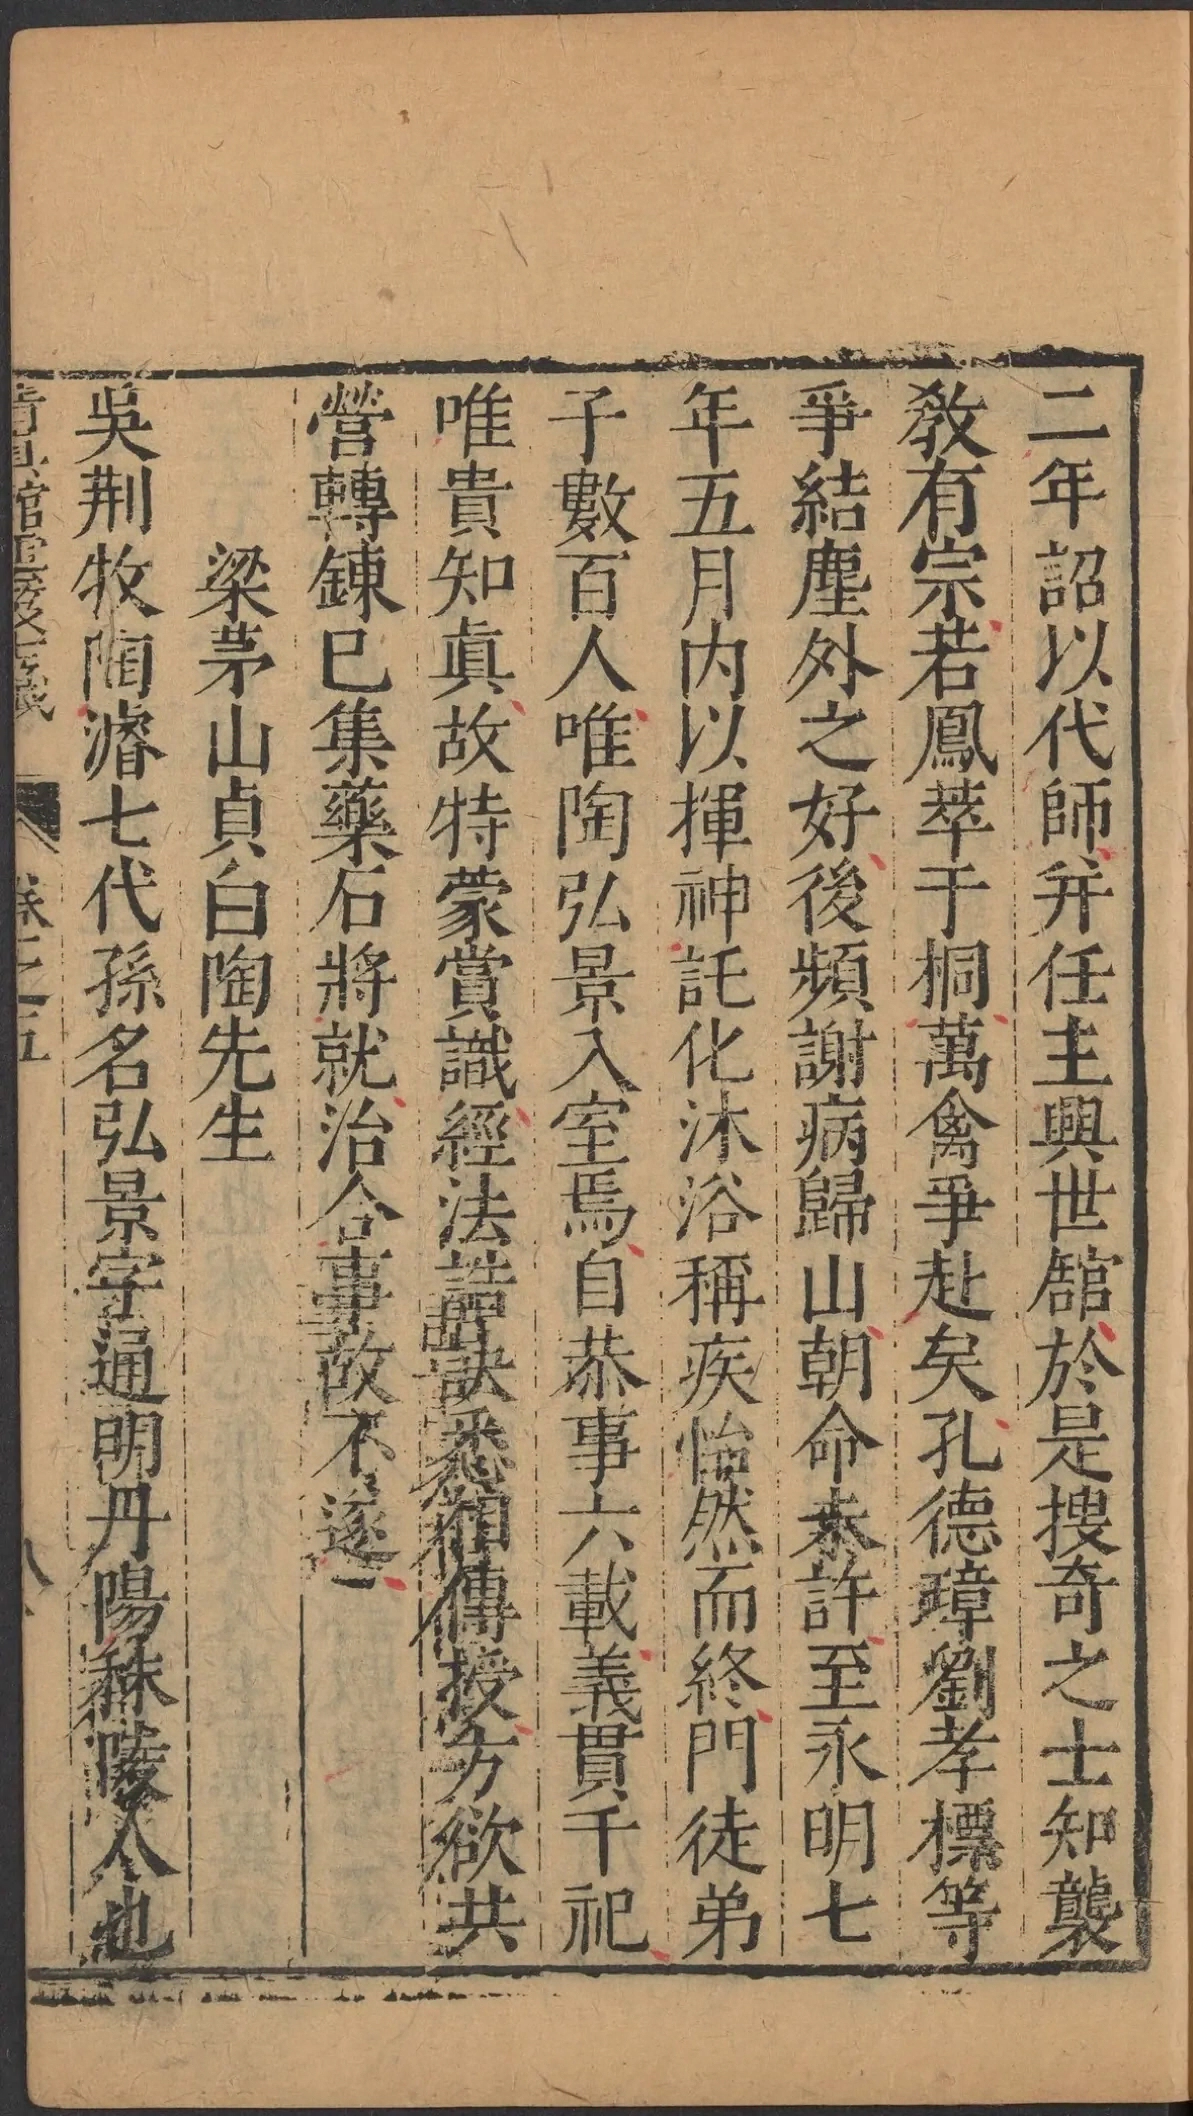 二年詔以代師并任主興世舘於是捜奇之士知襲
教有宗若鳳萃于桐萬禽爭赴矣孔德璋劉孝標等
爭結塵外之好後頻謝病歸山朝命未許至永明七
年五月内以揮神託化沐浴稱疾怡然而終門徒弟
子數百人唯陶弘景入室焉自恭事六載義貫千祀
唯貴知眞故特蒙賞識經法誥訣悉相傳授方欲共
營轉鍊已集藥石將就治合事故不遂
梁茅山貞白陶先生
吳荆牧陶濬七代孫名弘景字通明丹陽秣陵人也
卷二之五
八